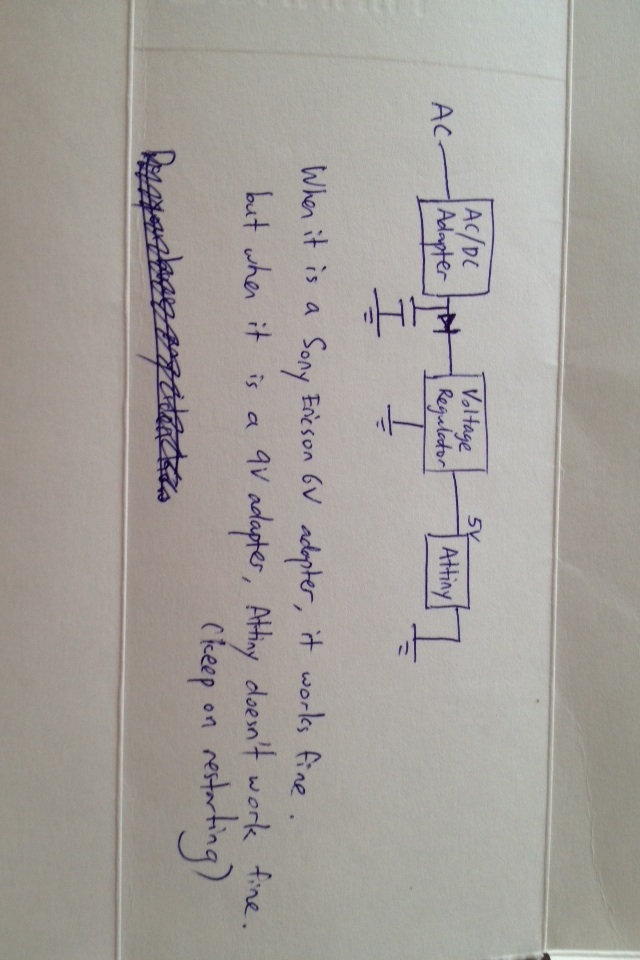 AC
AC/DC
Adapter
Voltage
Regulator
5V
Attiny
When it is a Sony Ericson 6V adapter, it works fine.
but when it is a 9V adapter, Attiny doesn't work fine.
(keep on restarting)